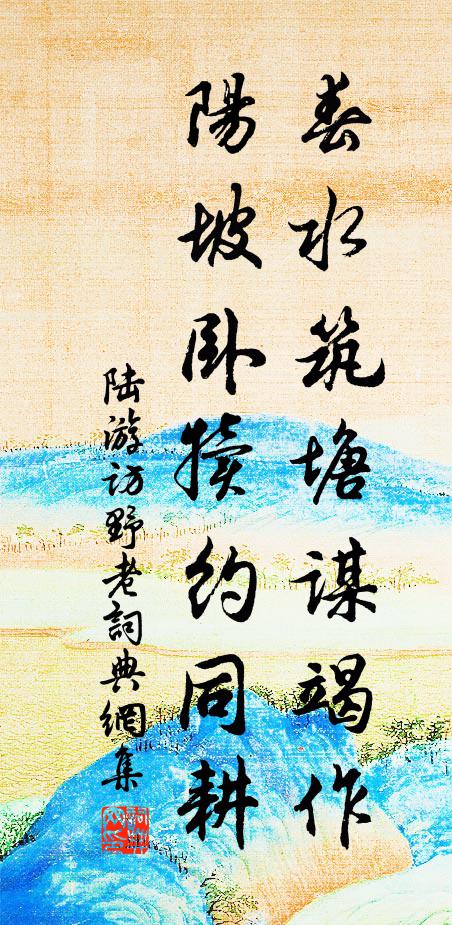 春水筑塘謀竭作
陽坡卧犢约同耕
陆游访野老詞典網集